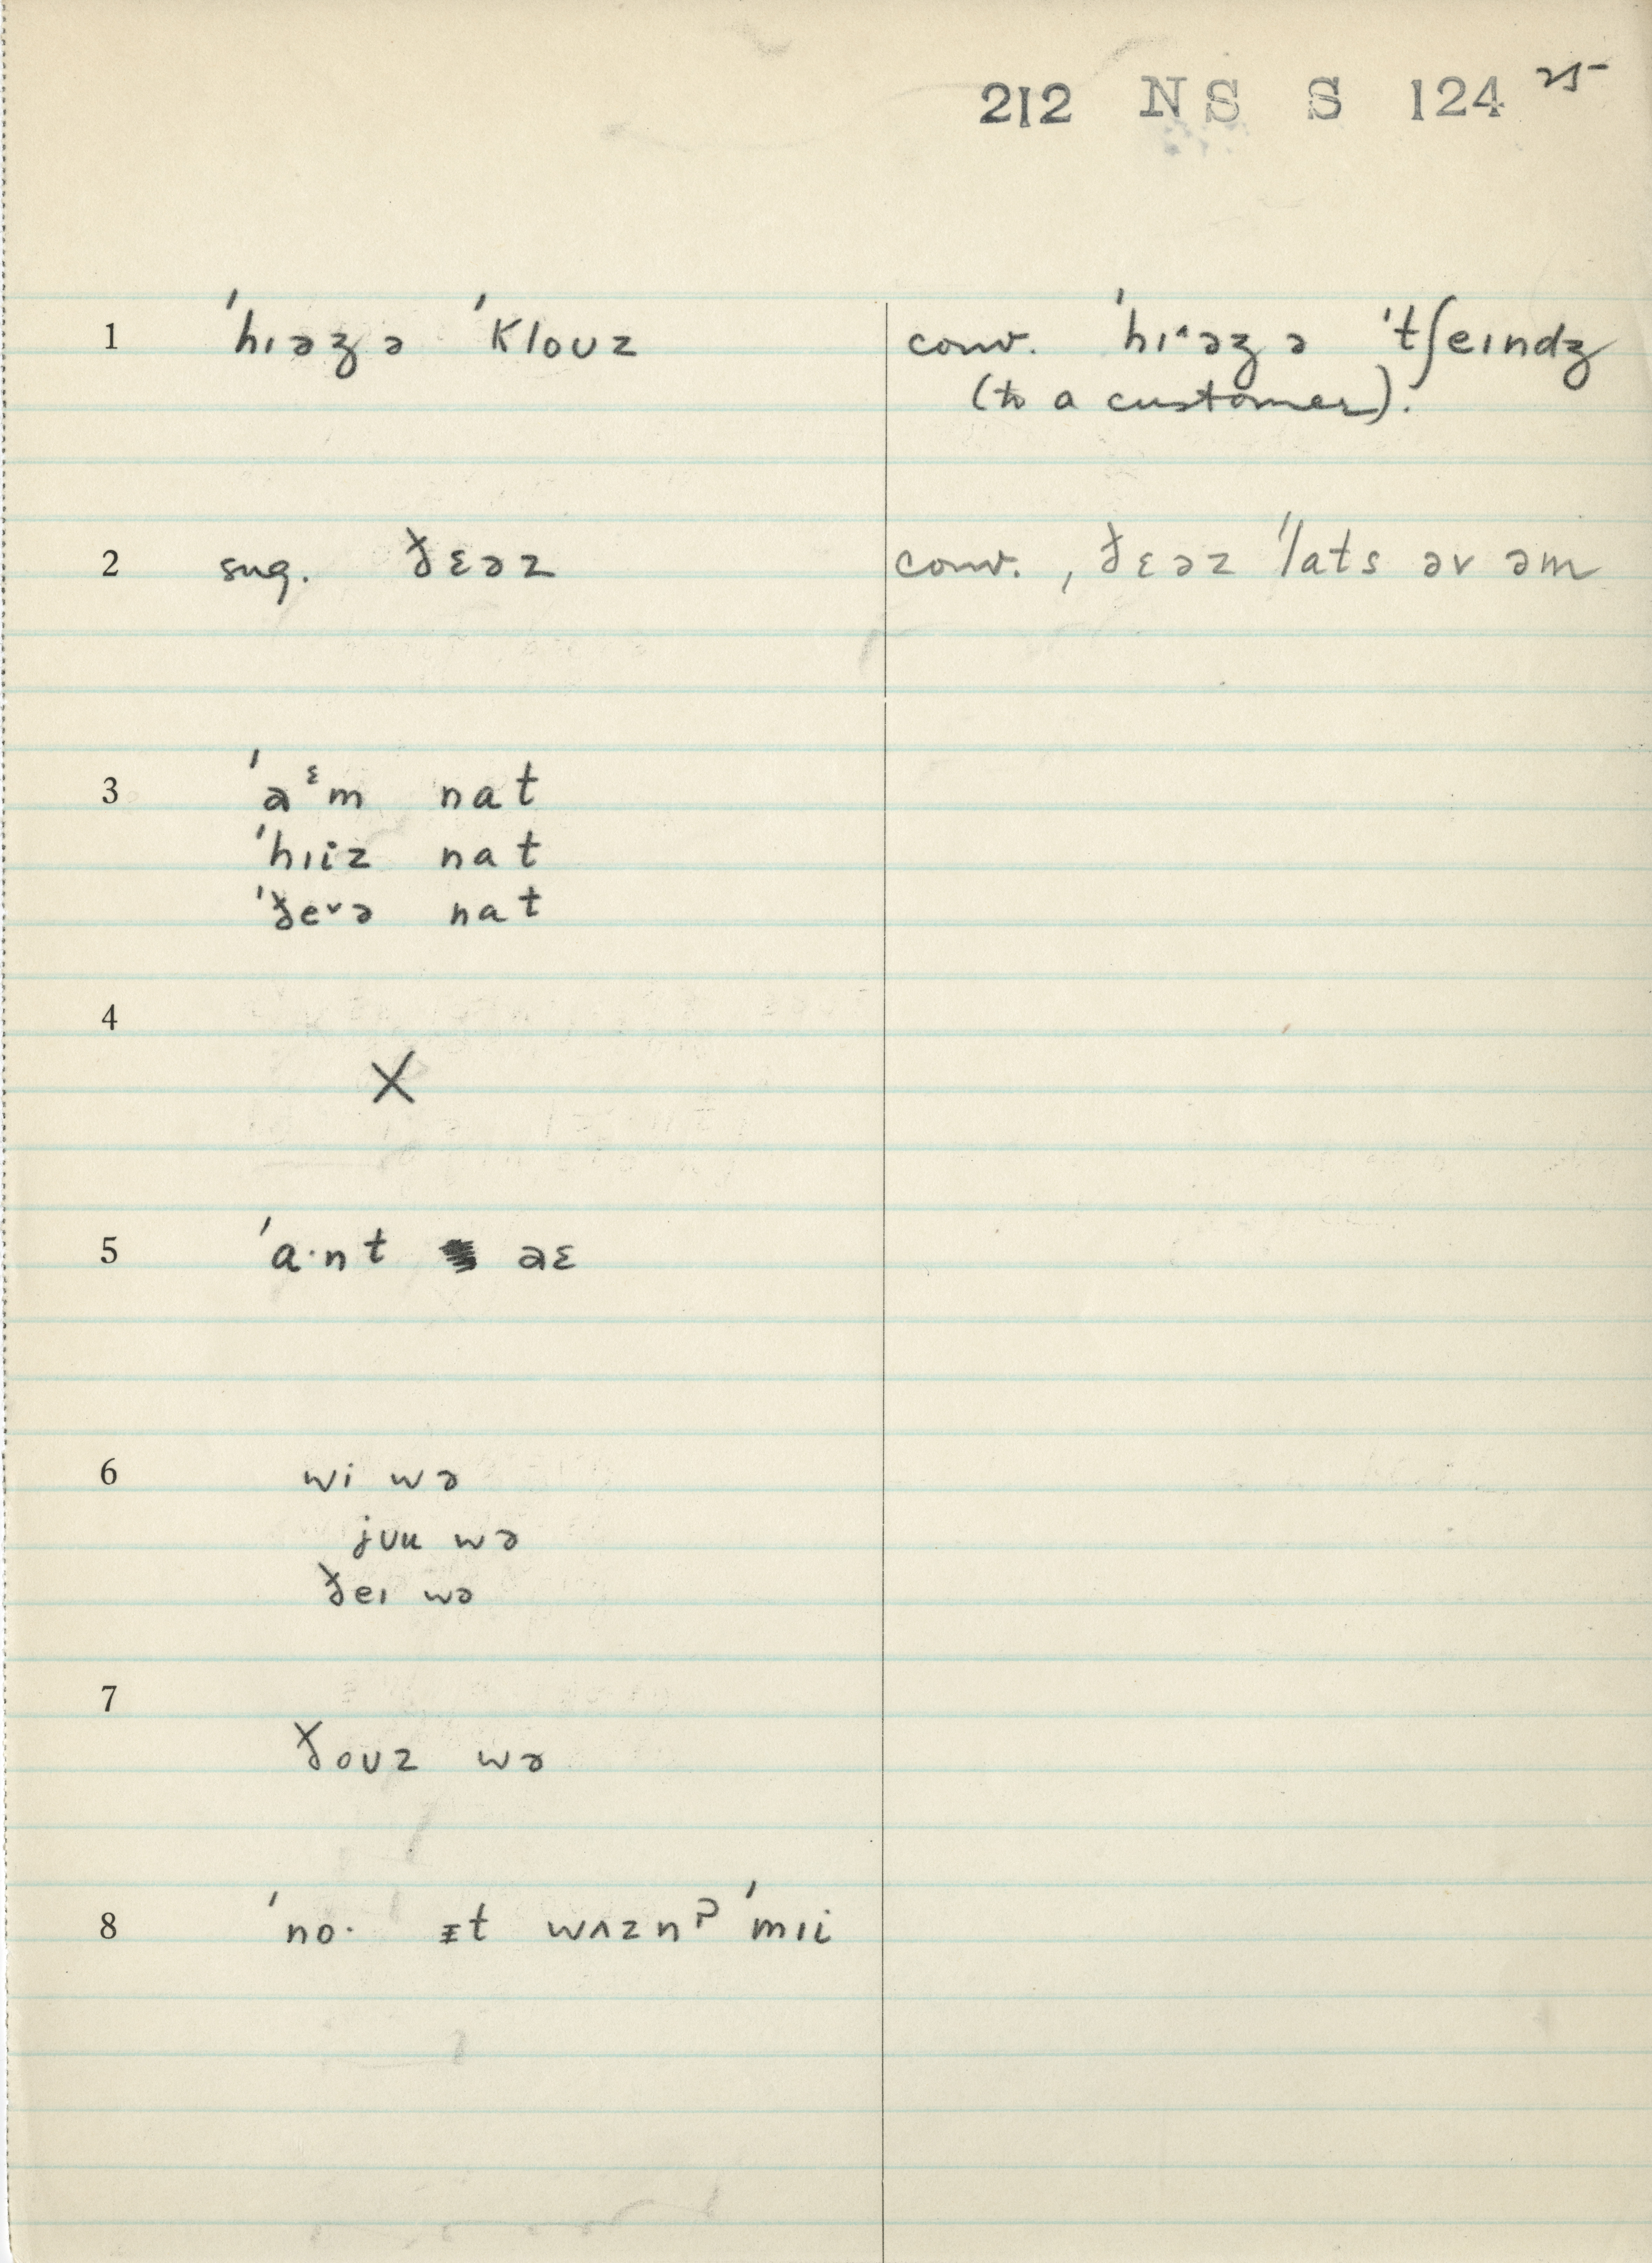 212 NS S 124 25
1 ˈhɪəʒ ə ˈklouz conv. ˈhɪ˄əʒ ə ˈtʃeɪndʒ
(to a customer).
2 sug. ðɛəz conv. , ðɛəz ˈlats əv əm
3 ˈaᵋm nat
ˈhɪiz nat
ˈðe˅ə nat
4
X
5 ˈa·nt aɛ
6 wi wə
jʊu wə
ðeɪ wə
7
ðoʊz wə
8 ˈno· ᵻt wʌznˀ ˈmɪi